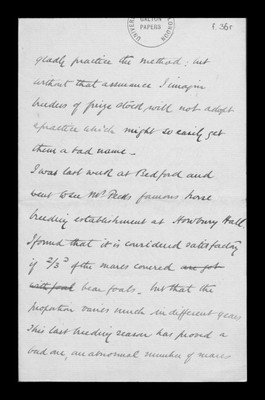 GALTON
PAPERS
f. 36r
gladly practice the method; but
without that assurance I imagine
breeders of prize stock, will not adopt
a practice which might so easily get
them a bad name.
I was last week at Bedford and
went to see Mr. famous horse
breeding establishment at Howbury Hall
I found that it is considered satisfactory
if 2/3 of the mares covered are got
with foal bear foals, but that the
proportion varies much in different years
This last breeding season has proved a
bad one, an abnormal number of mares